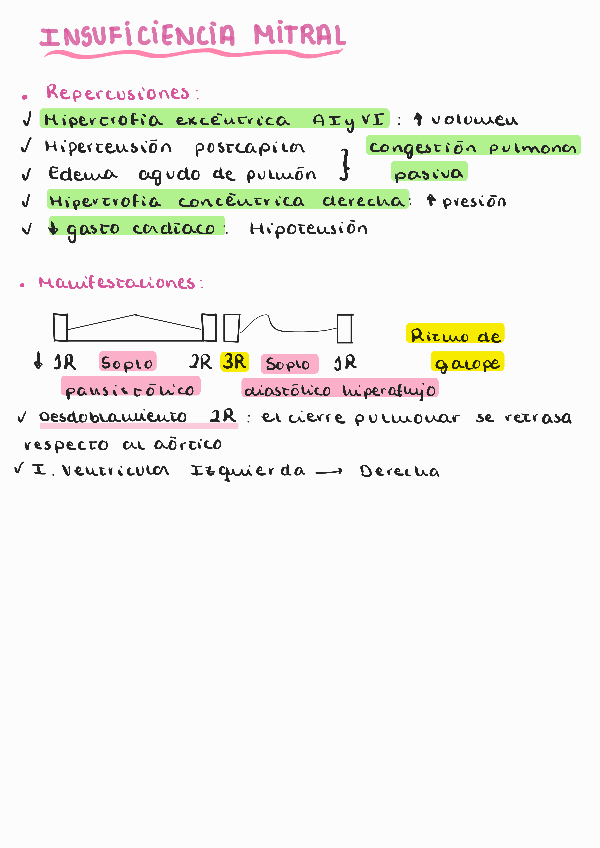 INSUFICIENCIA MITRAL
• Repercusiones:
✓ Hipertrofia excéntrica AI y VI : ↑ volumen
✓ Hipertensión postcapilar } congestión pulmonar
✓ Edema agudo de pulmón pasiva
✓ Hipertrofia concéntrica derecha: ↑ presión
✓ ↓ gasto cardíaco: Hipotensión
• Manifestaciones:
Ritmo de
↓ 1R Soplo 2R 3R Soplo 1R galope
pansistólico diastólico hiperaflujo
✓ Desdoblamiento 2R : el cierre pulmonar se retrasa
respecto al aórtico
✓ I. Ventricular Izquierda → Derecha